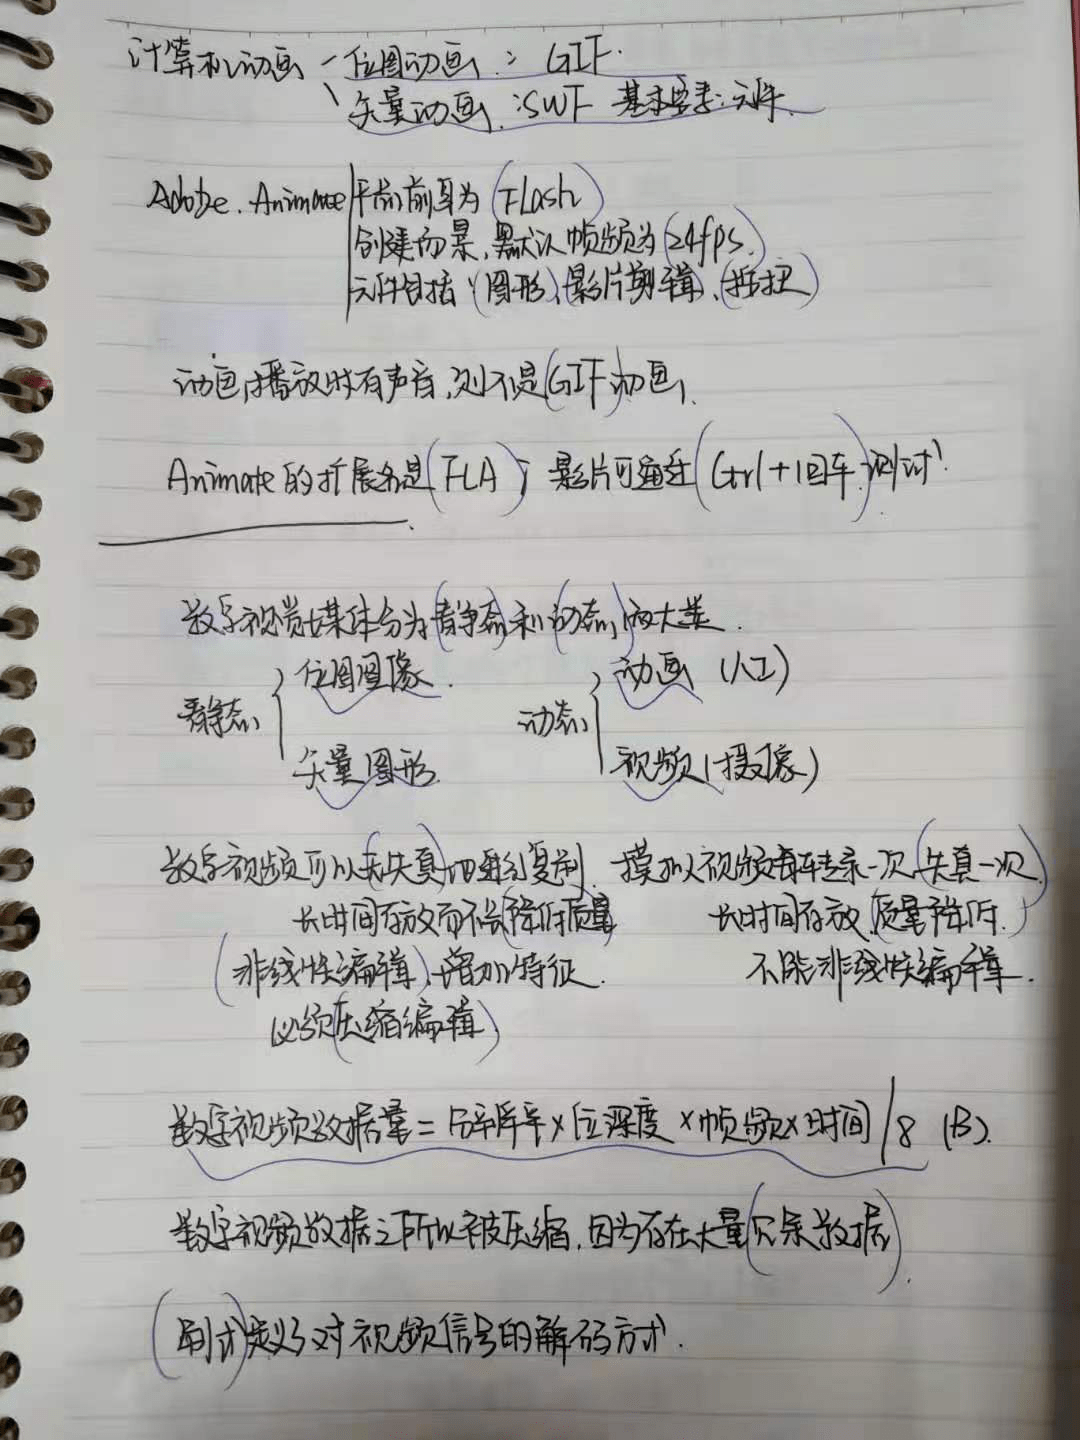 计算机动画 - 位图动画：GIF.
矢量动画：SWF 基本要素：元件.
Adobe. Animate 平前前身为(Flash)
创建场景，默认帧频为(24fps.)
元件包括(图形)(影片剪辑)、(按扭)
动画播放时有声音，则不是(GIF)动画.
Animate的扩展名是(FLA)；影片可通过(Ctrl+回车)测试.
数字视觉媒体分为(静态)和(动态)两大类.
静态 { 位图图像. 动态 { 动画 (人工)
矢量图形. 视频(摄像)
数字视频可以(无失真)地无限复制. 模拟视频每转录一次,(失真一次)
长时间存放而不会(降低质量 长时间存放(质量降低.)
(非线性编辑),增加特征. 不能非线性编辑.
必须(压缩编辑)
数字视频数据量=分辨率×位深度×帧频×时间/8 (B).
数字视频数据之所以被压缩,因为存在大量(冗余数据).
(制式)定义了对视频信号的解码方式.